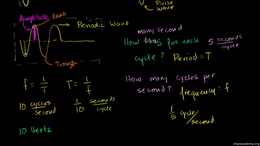 Pulse
Wave
Amplitude
Peak
Periodic Wave
Trough
many second
How for each 5 seconds/cycle
cycle? Period = T
f = 1/T T = 1/f
How many cycles per
second? frequency = f
10 cycles/second 1/10 seconds/cycle
1/5 cycle/second
10 Hertz